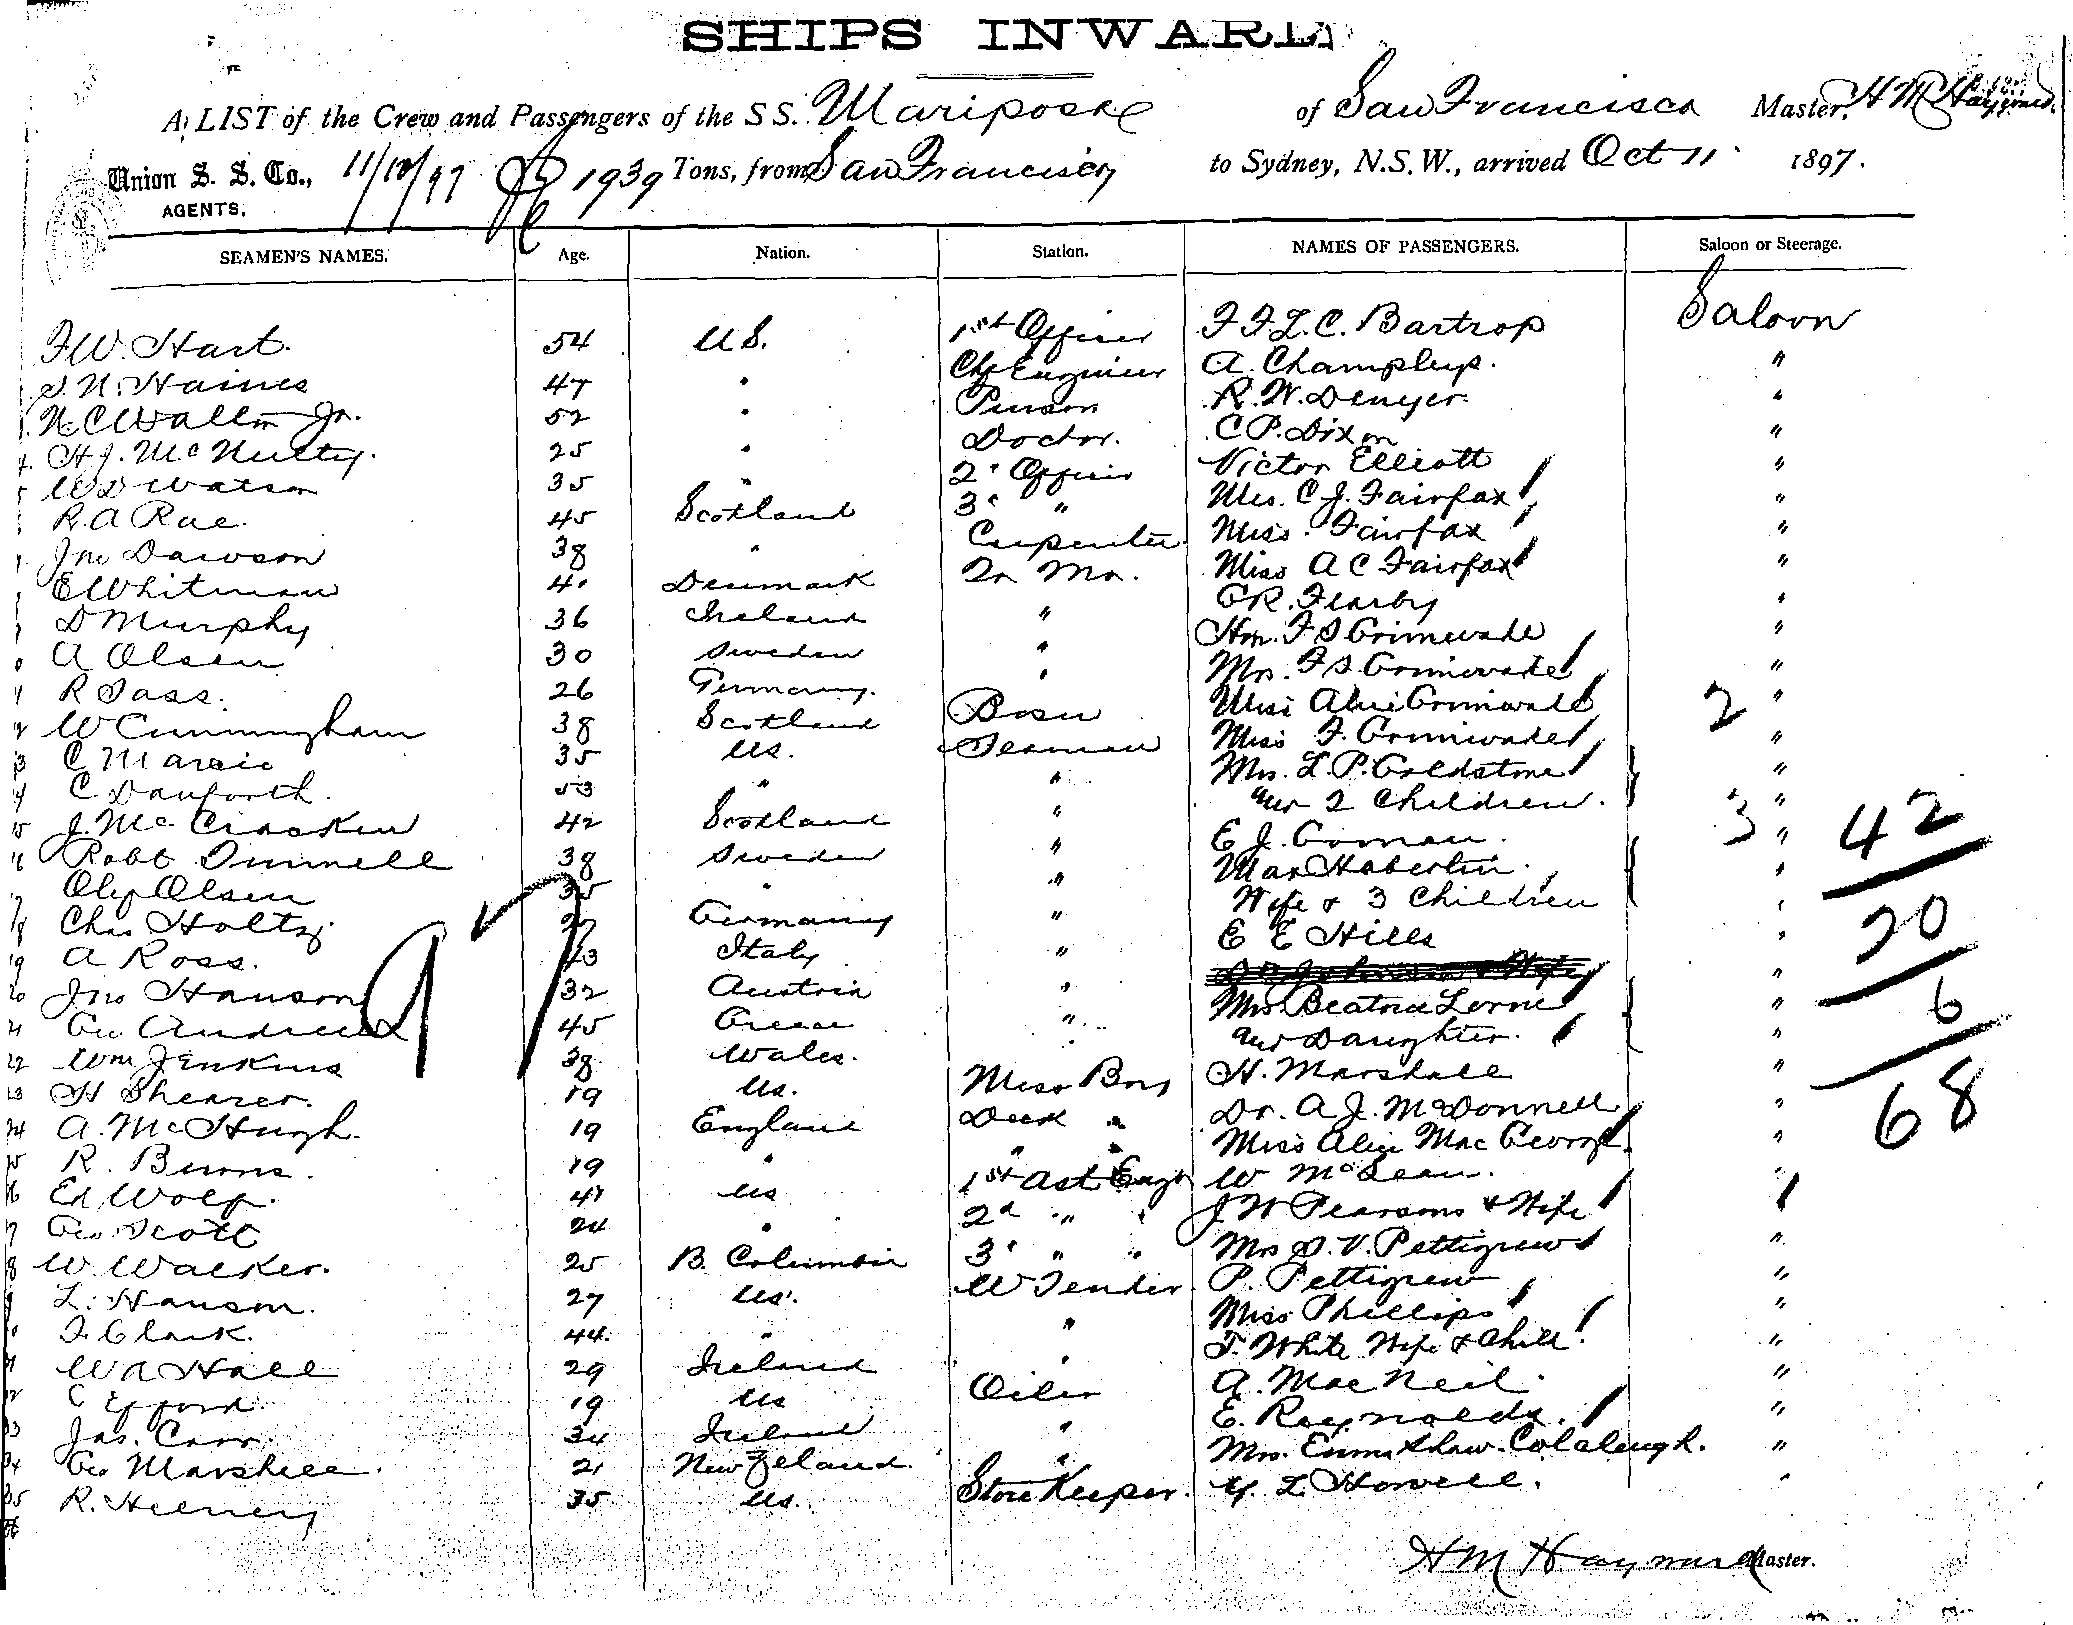 SHIPS INWARD
A LIST of the Crew and Passengers of the S S. Mariposa of San Francisco Master, H M Hayward
Union S. S. Co., 11/10/97 1939 Tons, from San Francisco to Sydney, N.S.W., arrived Oct 11 1897.
AGENTS.
SEAMEN'S NAMES. Age. Nation. Station. NAMES OF PASSENGERS. Saloon or Steerage.
F W. Hart. 54 U S. 1st Officer F F L. C. Bartrop Saloon
N. Haines 47 " Chf Engineer A. Champleys. "
N C Walton Jr. 52 " R. W. Denyer. "
4 H. J. McNulty. 25 " Doctor. C P. Dixon "
5 W D Watson 35 " 2d Officer Victor Elliott "
R. A Rae. 45 Scotland 3d " Mrs. C. J. Fairfax "
Jno Dawson 38 " Carpenter Miss. Fairfax "
E Whitman 40 Denmark Qr Mr. Miss A C Fairfax "
D Murphy 36 Ireland " C R. Fearby "
A Olsen 30 Sweden " Hon. F S Grimwade "
11 R Sass. 26 Germany. " Mrs. F S. Grimwade "
12 W Cunningham 38 Scotland Bosn Miss Alice Grimwade 2 "
13 C 35 US. Seaman Miss F. Grimwade "
14 C Danforth. 53 " " Mrs. L. P. Goldstone "
15 J. McCracken 42 Scotland " and 2 Children. 3 "
16 Robt Dunnell 38 Sweden " E J. Gorman. "
17 Olsen 35 " " Max Haberlin. "
18 Chas Holtz. Germany " Wife & 3 Children "
19 A Ross. 43 Italy " E E Hills "
20 Jno Hanson 32 Austria " "
21 Geo Andrews 45 Greece " Mrs Beatrice Lorne "
22 Wm Jenkins 38 Wales. and Daughter. "
23 H Shearer. 19 US. Mess Boy H. Marshall "
24 A. McHugh. 19 England Deck " Dr. A. J. McDonnell "
25 R. Burns. 19 " " " Miss Alice Mac George "
26 Ed Wolf. 41 US 1st Ast Engr W McLean. "
27 Geo Scott 24 " 2d " " J W Pearsons & Wife
28 W. Walker. 25 B. Columbia 3d " " Mrs S. V. Pettigrew "
29 L. Hanson. 27 US. W Tender P. Pettigrew "
30 F. Clark. 44. " " Miss Phillips "
31 W A Hall 29 Ireland " F. White Wife & Child. "
32 E Efford. 19 US Oiler A. MacNeil. "
33 Jas. Carr. 34 Ireland " E. Reynolds. "
34 Geo Marshall. 21 New Zeland " Mrs. Emma Shaw-Colcleugh. "
35 R. Heeney 35 US. Store Keeper. L Howell. "
36
42
20
6
68
97
H M Hayward Master.